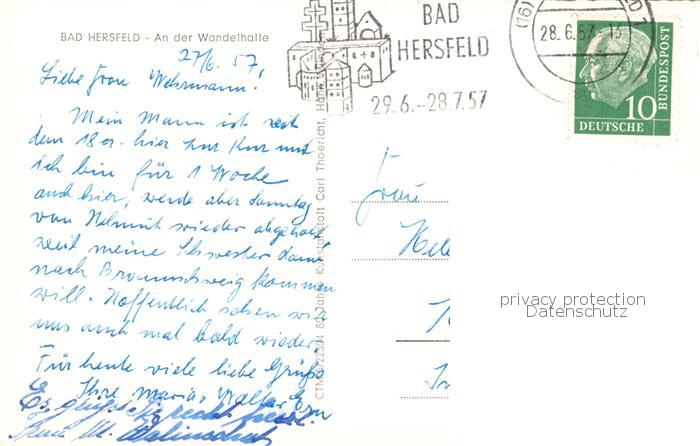 BAD HERSFELD - An der Wandelhalle
27/6. 57.
Liebe Frau Wehrmann!
Mein Mann ist seit
dem 18er. hier zur Kur und
ich bin für 1 Woche
auch hier, werde aber Sonntag
von Helmut wieder abgeholt
weil meine Schwester dann
nach Braunschweig kommen
will. Hoffentlich sehen wir
uns auch mal bald wieder.
Für heute viele liebe Grüße
Ihre
Es grüßt recht
BAD
HERSFELD
29.6.-28.7.57
(16)
28.6.57.-13
10
DEUTSCHE
BUNDESPOST
Kunstanstalt Carl Thoericht,
Frau
privacy protection
Datenschutz